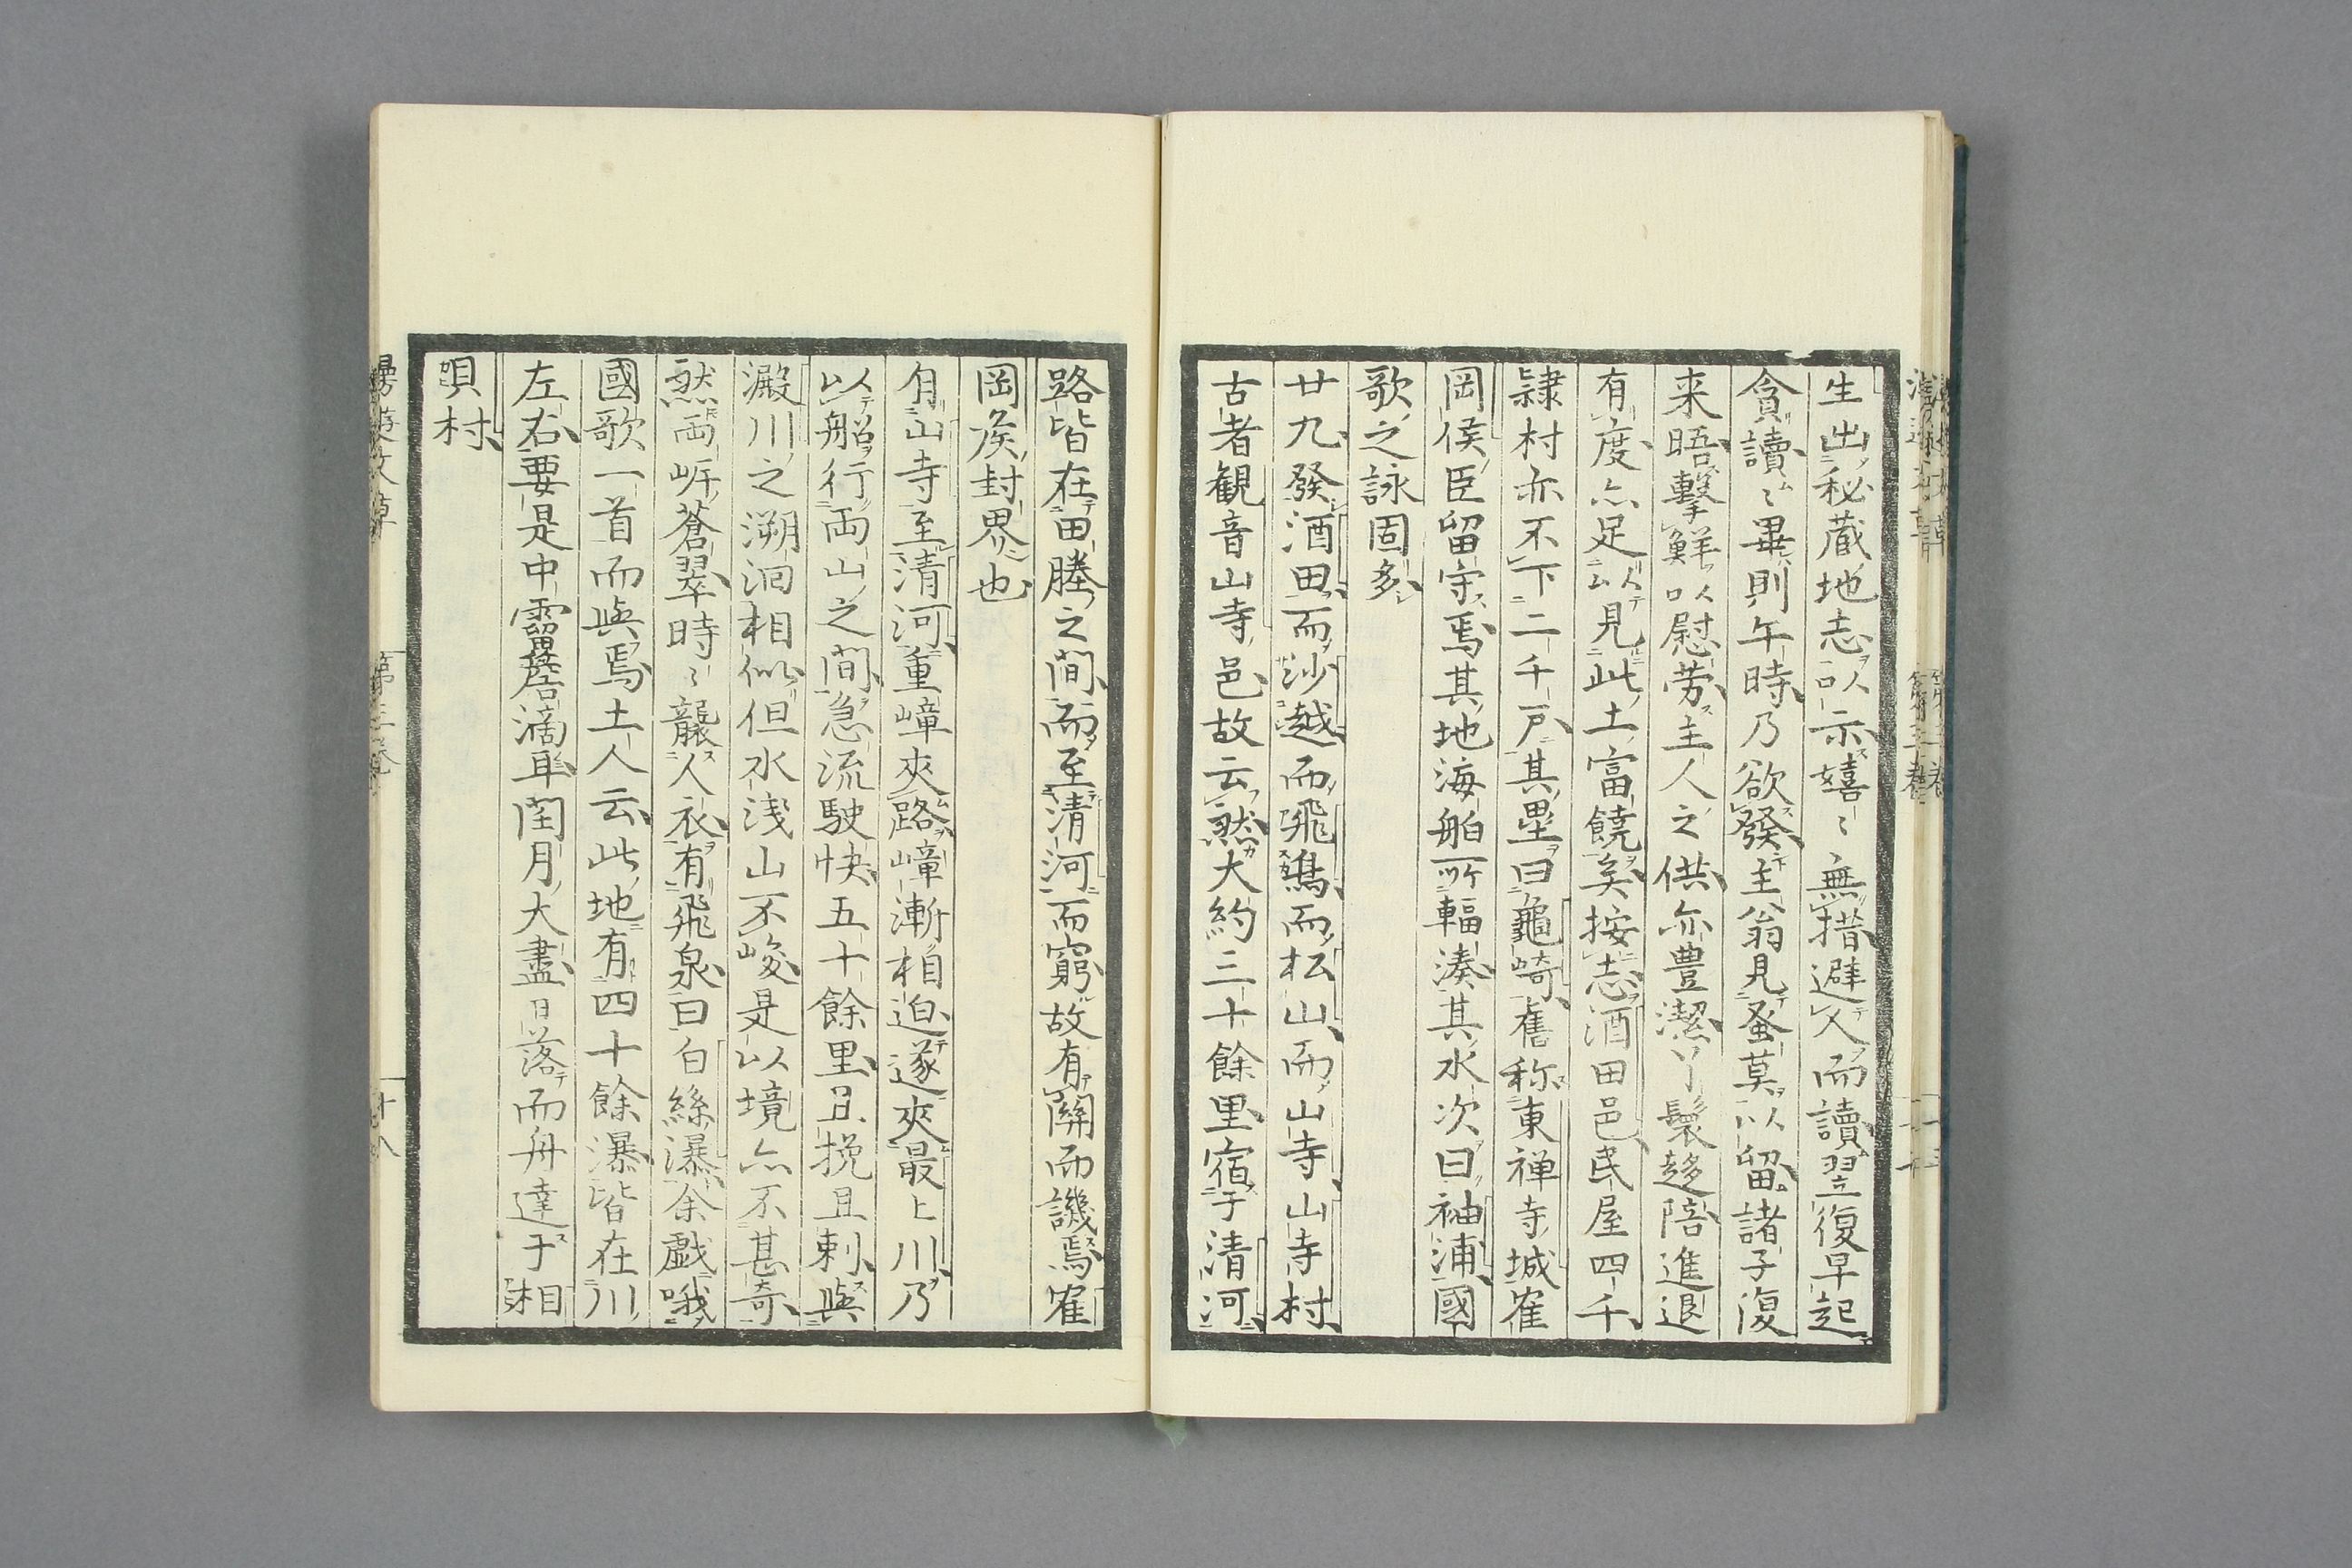 生出秘蔵地志以示嬉〻無措避人而讀翌復早起
貪讀〻畢則午時乃欲發主翁見蚤莫以留諸子復
来晤擊鮮以慰劳主人之供亦豊潔丫鬟趍陪進退
有度亦足以見此土富饒矣按志酒田邑民屋四千
隷村亦不下二千戸其壘曰龜崎舊称東禅寺城隺
岡侯臣留守焉其地海舶所輻湊其水次曰袖浦國
歌之詠固多
廿九發酒田而沙越而飛鳥而松山而山寺山寺村
古者観音山寺邑故云然大約三十餘里宿于清河
路皆在田塍之間而至清河而窮故有關而譏焉隺
岡侯封界也
自山寺至清河重嶂夾路嶂漸相迫遂夾最上川乃
以船行两山之間急流駛快五十餘里且挽且刺與
澱川之溯洄相似但水浅山不峻是以境亦不甚奇
然两岸蒼翠時〻襲人衣有飛泉曰白絲瀑余戯哦
國歌一首而與焉土人云此地有四十餘瀑皆在川
左右要是中霤簷滴耳閏月大盡日落而舟達于相
唄村
漫遊文草
第三卷
十八